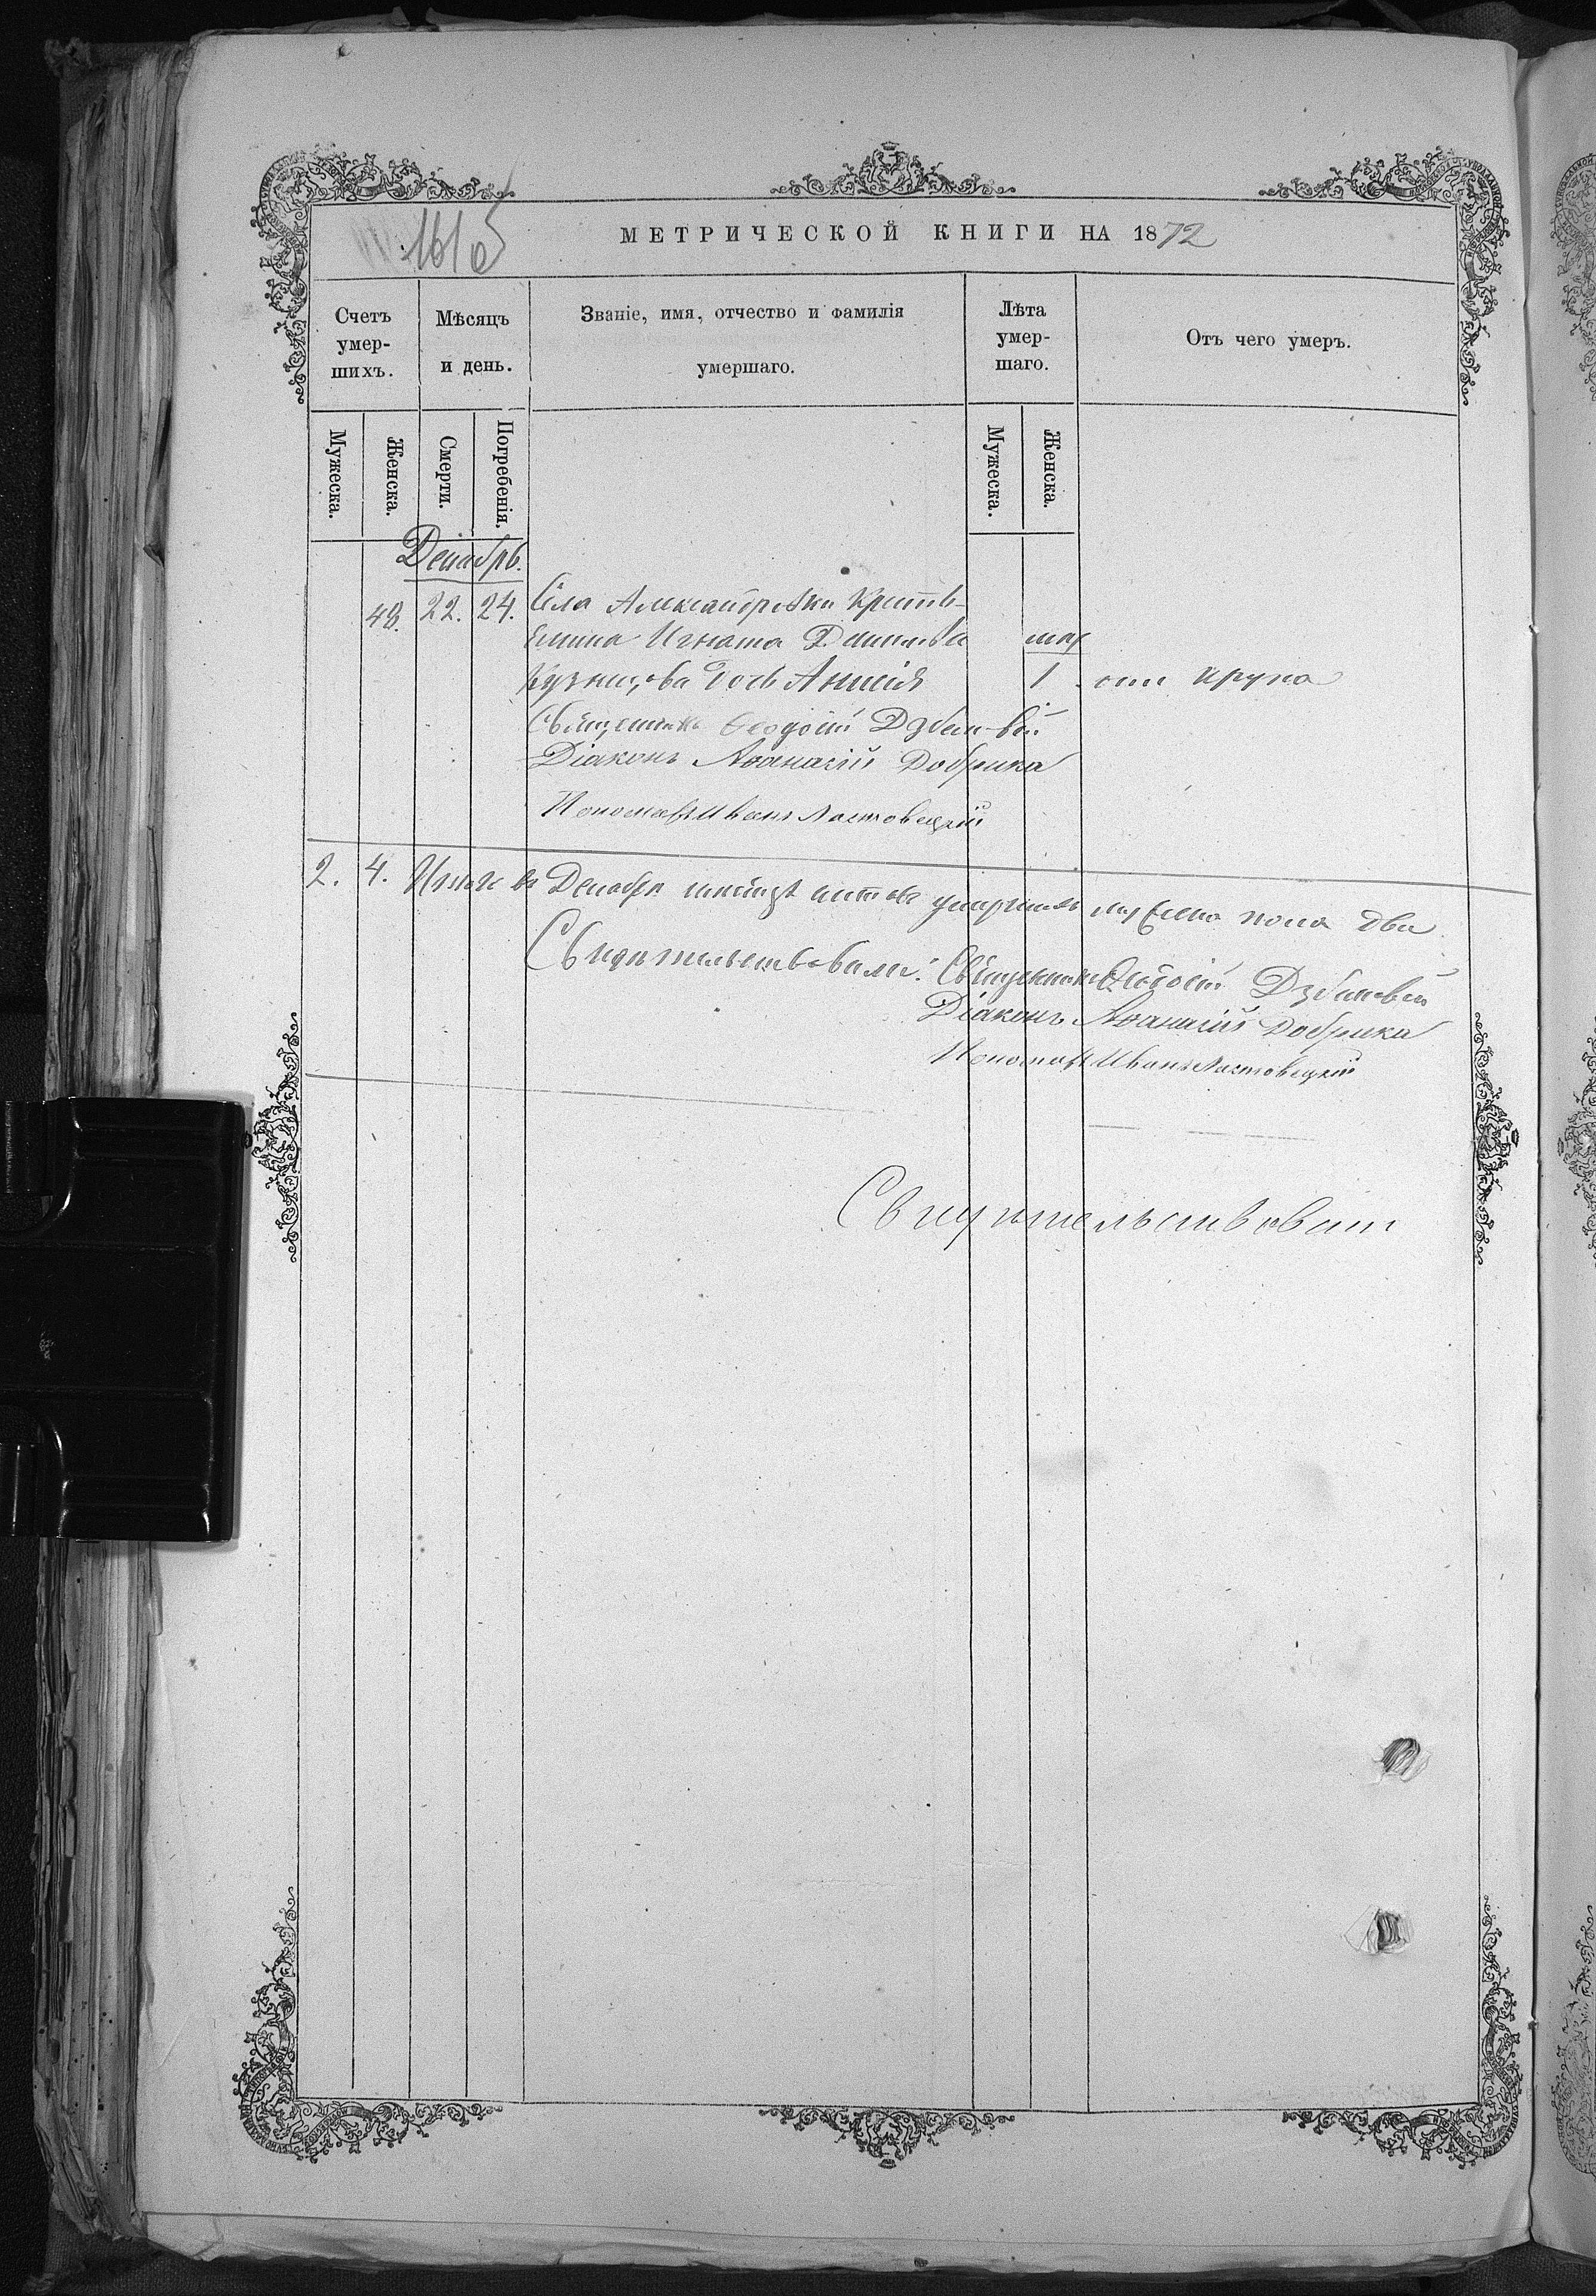 МЕТРИЧЕСКОЙ КНИГИ НА 1872
Счетъ умер-шихъ.
Мѣсяцъ и день.
Званіе, имя, отчество и фамилія умершаго.
Лѣта умер-шаго.
Отъ чего умеръ.
Мужеска.
Женска.
Смерти.
Погребенія.
Мужеска.
Женска.
Декабрь.
48. 22. 24. Села Александровки Кресть-
янина Игната
Кузнецова дочь Анисія 1 отъ крупа
Священникъ Ѳеодосій
Діаконъ Аѳанасій Добрика
Пономарь Иванъ Ластовецкій
2. 4. Итого въ Декабрѣ мѣсяцѣ умершихъ мужеска пола два
Свидѣтельствовали: Священникъ Ѳеодосій
Діаконъ Аѳанасій Добрика
Пономарь Иванъ Ластовецкій